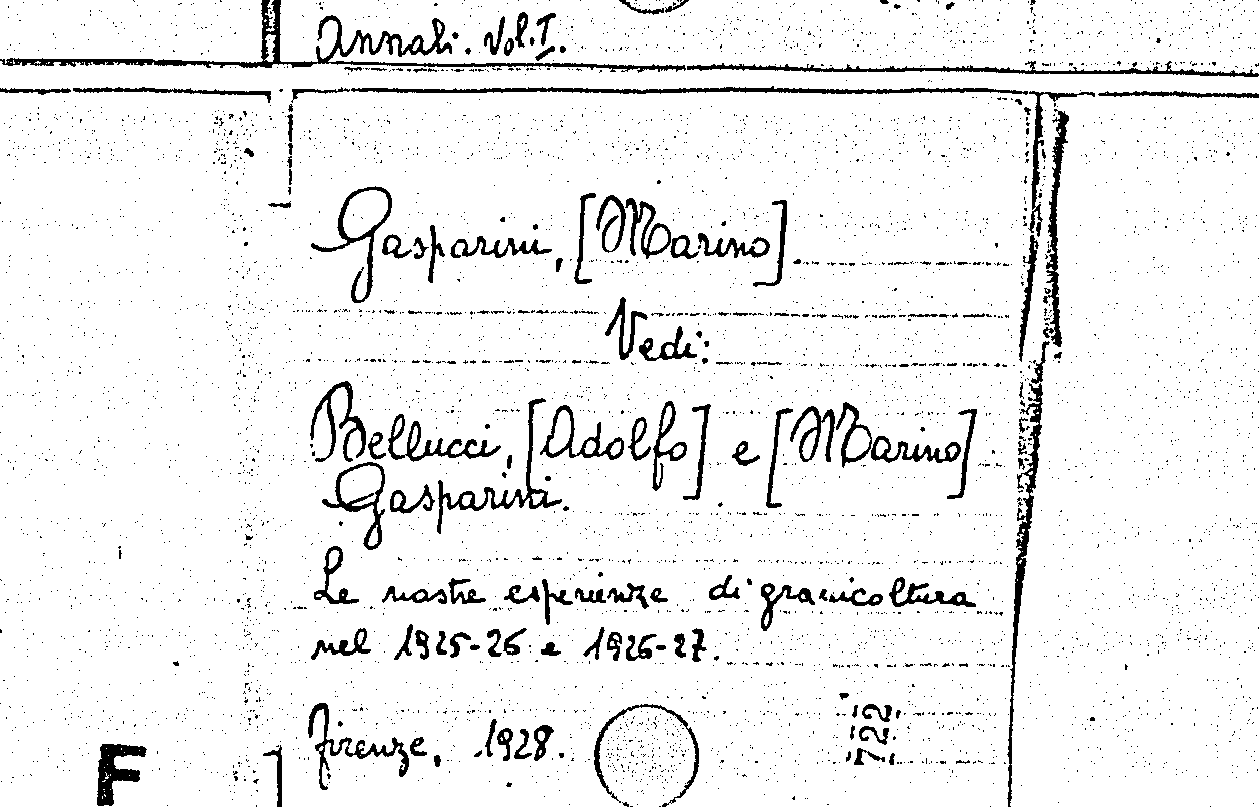 Annali. Vol. I.
Gasparini, [Marino].
Vedi:
Bellucci, [Adolfo] e [Marino]
Gasparini.
Le nostre esperienze di granicoltura
nel 1925-26 e 1926-27.
Firenze, 1928.
722
F